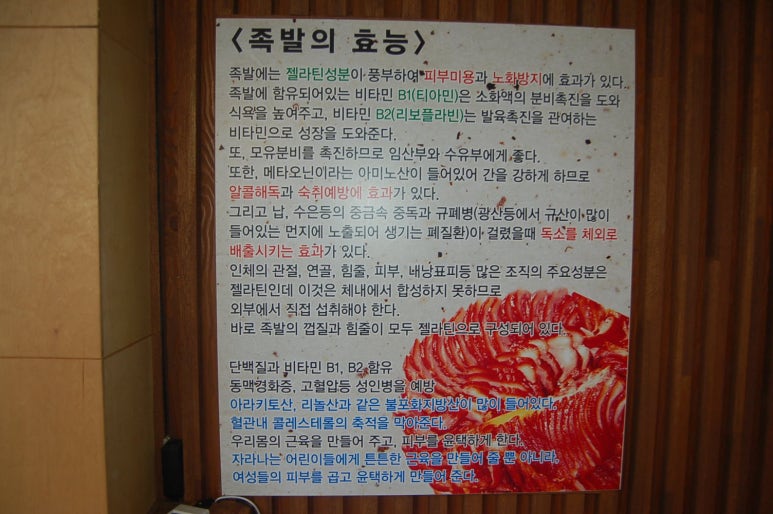 <족발의 효능>
족발에는 젤라틴성분이 풍부하여 피부미용과 노화방지에 효과가 있다..
족발에 함유되어있는 비타민 B1(티아민)은 소화액의 분비촉진을 도와
식욕을 높여주고, 비타민 B2(리보플라빈)는 발육촉진을 관여하는
비타민으로 성장을 도와준다.
또, 모유분비를 촉진하므로 임산부와 수유부에게 좋다.
또한, 메타오닌이라는 아미노산이 들어있어 간을 강하게 하므로
알콜해독과 숙취예방에 효과가 있다.
그리고 납, 수은등의 중금속 중독과 규폐병(광산등에서 규산이 많이
들어있는 먼지에 노출되어 생기는 폐질환)아 걸렸을때 독소를 체외로
배출시키는 효과가 있다.
인체의 관절, 연골, 힘줄, 피부, 배낭표피등 많은 조직의 주요성분은
젤라틴인데 이것은 체내에서 합성하지 못하므로
외부에서 직접 섭취해야 한다.
바로 족발의 껍질과 힘줄이 모두 젤라틴으로 구성되어 있다.
단백질과 비타민 B1, B2 함유
동맥경화증, 고혈압등 성인병을 예방
아라키토산, 리놀산과 같은 불포화지방산이 많이 들어있다.
혈관내 콜레스테롤의 축적을 막아준다.
우리몸의 근육을 만들어 주고, 피부를 윤택하게 한다.
자라나는 어린이들에게 튼튼한 근육을 만들어 줄 뿐 아니라,
여성들의 피부를 곱고 윤택하게 만들어 준다.